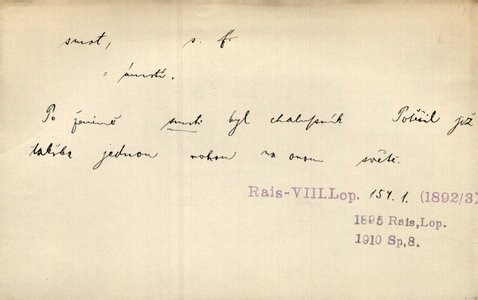 smrt, s. f.
= úmrtí.
Po ženině smrti byl chalupník Potěšil již
takřka jednou nohou na onom světě.
Rais-VIII.Lop. 154.1. (1892/3)
1895 Rais,Lop.
1910 Sp,8.